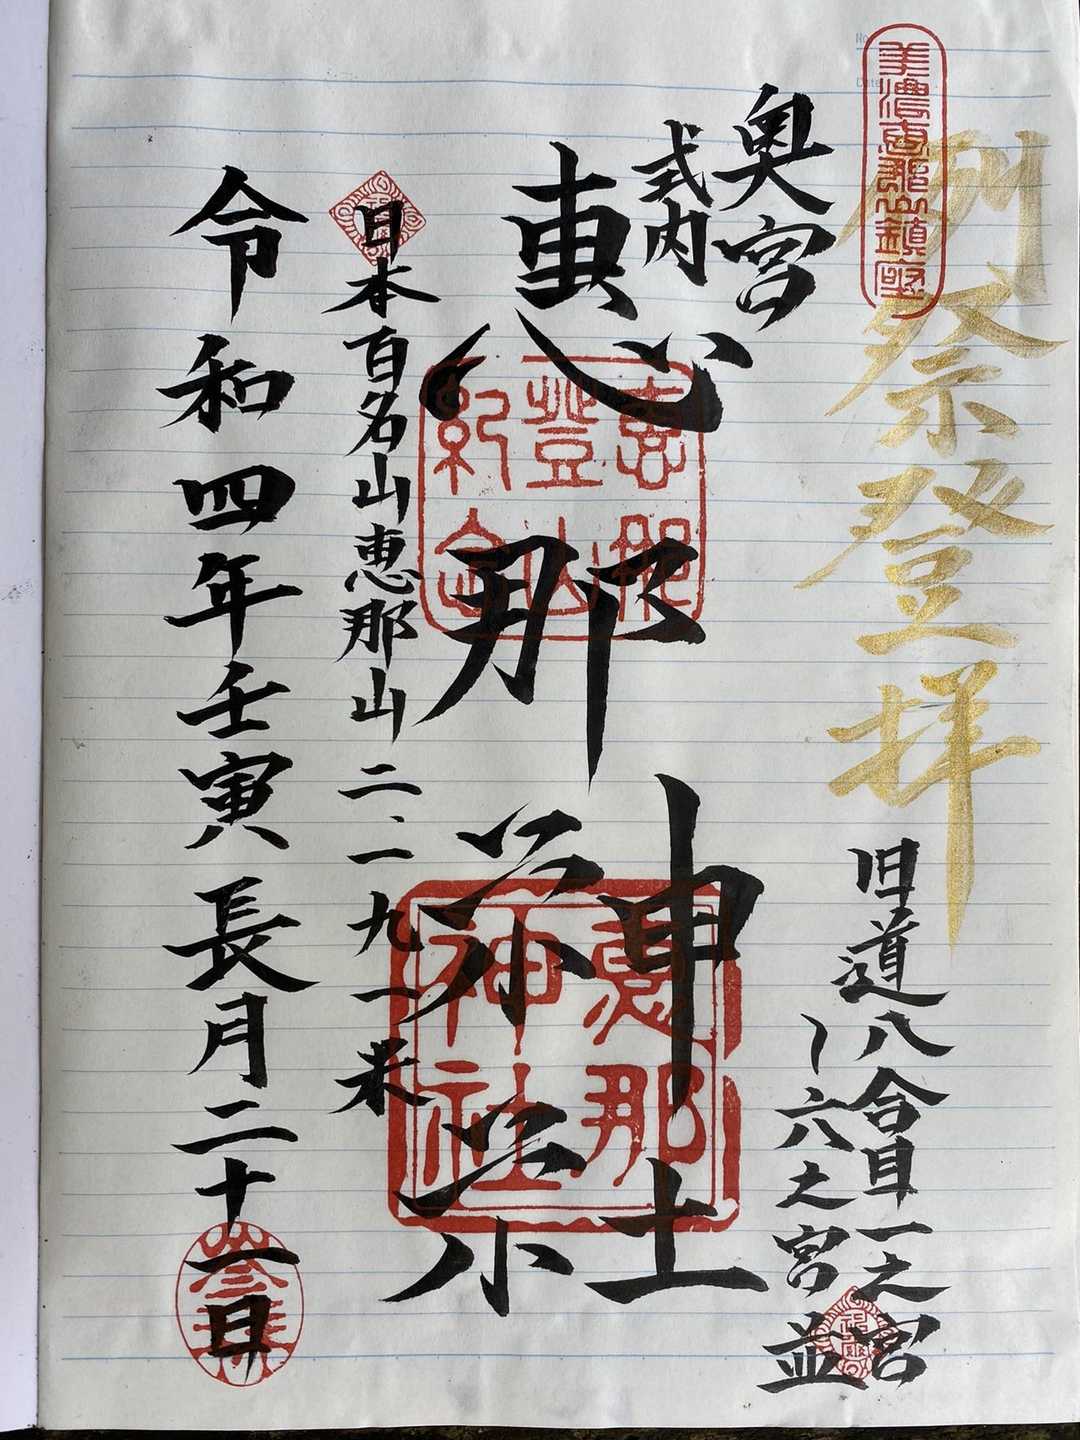 No.
Date
例祭登拝
美濃恵那山鎮座
旧道八合目一之宮
〜六之宮並
奥宮
式内
恵那神社
恵那登山紀念
恵那神社
日本百名山恵那山二、一九一米
令和四年壬寅長月二十一日
参拝